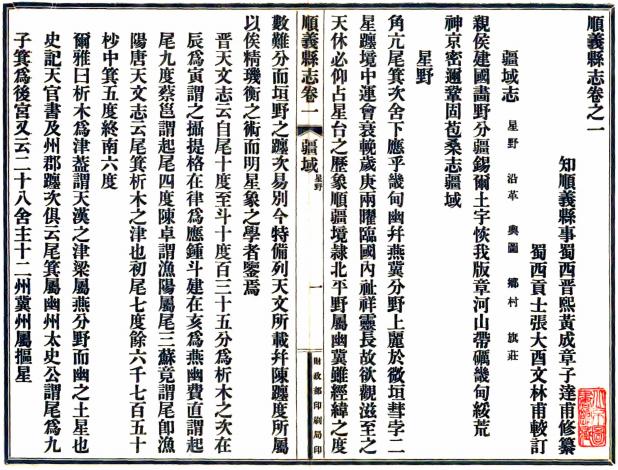 順義縣志卷之一
知順義縣事蜀西晋熙黃成章子達甫修纂
蜀西貢士張大酉文林甫較訂
疆域志 星野 沿革 輿圖 鄉村 旗莊
親侯建國畵野分疆錫爾土宇恢我版章河山帶礪畿甸綏荒
神京密邇鞏固苞桑志疆域
星野
角亢尾箕次舍下應乎畿甸幽幷燕冀分野上麗於微垣彗孛二
星躔境中運會衰輓歲庚兩曜臨國內祉祥靈長故欲觀滋至之
天休必仰占星台之歷象順疆境隷北平野屬幽冀雖經緯之度
順義縣志卷一 疆域 星野 一 財政部印刷局印
數難分而垣野之躔次易別今特備列天文所載幷陳躔度所屬
以俟精璣衡之術而明星象之學者鑒焉
晋天文志云自尾十度至斗十度百三十五分爲析木之次在
辰爲寅謂之攝提格在律爲應鍾斗建在亥爲燕幽費直謂起
尾九度蔡邕謂起尾四度陳卓謂漁陽屬尾三蘇竟謂尾卽漁
陽唐天文志云尾箕析木之津也初尾七度餘六千七百五十
杪中箕五度終南六度
爾雅曰析木爲津葢謂天漢之津梁屬燕分野而幽之土星也
史記天官書及州郡躔次俱云尾箕屬幽州太史公謂尾爲九
子箕爲後宮又云二十八舍主十二州冀州屬摳星